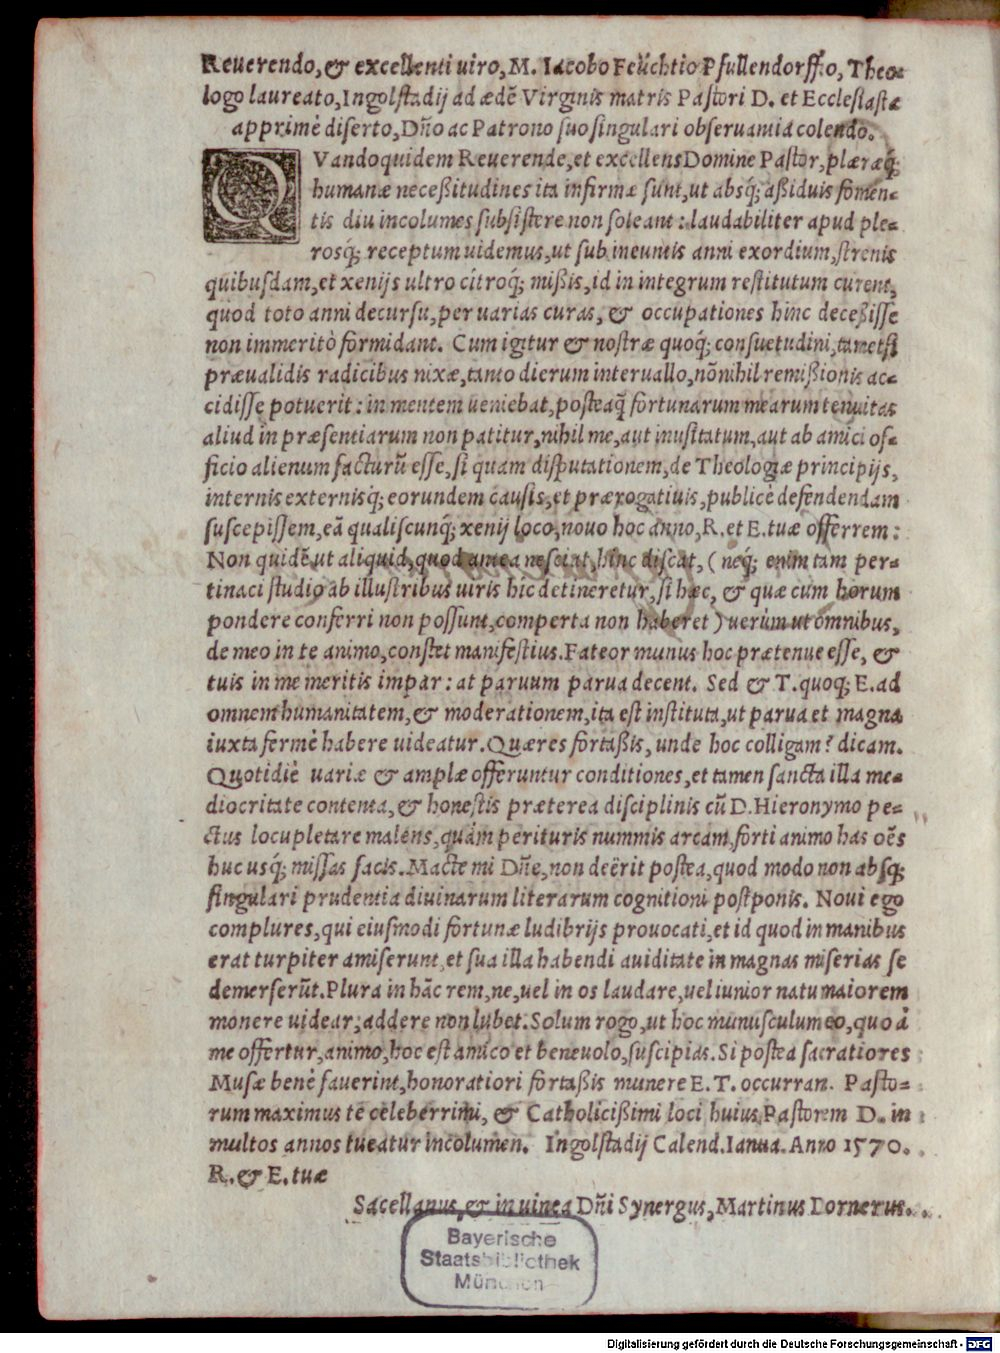 Reuerendo, & excellenti uiro, M. Iacobo Feüchtio Pfullendorffio, Theo-
logo laureato, Ingolstadij ad ædē Virginis matris Pastori D. et Ecclesiastæ
apprimè diserto, Dño ac Patrono suo singulari obseruantia colendo.
QVandoquidem Reuerende, et excellens Domine Pastor, plæræq;
humanæ neceßitudines ita infirmæ sunt, ut absq; aßiduis fomen-
tis diu incolumes subsistere non soleant: laudabiliter apud ple-
rosq; receptum uidemus, ut sub ineuntis anni exordium, strenis
quibusdam, et xenijs ultro citroq; mißis, id in integrum restitutum curent,
quod toto anni decursu, per uarias curas, & occupationes hinc deceßisse
non immeritò formidant. Cum igitur & nostræ quoq; consuetudini, tametsi
præualidis radicibus nixæ, tanto dierum interuallo, nōnihil remißionis ac-
cidisse potuerit: in mentem ueniebat, posteaq̃ fortunarum mearum tenuitas
aliud in præsentiarum non patitur, nihil me, aut inusitatum, aut ab amici of-
ficio alienum facturū esse, si quam disputationem, de Theologiæ principijs,
internis externisq; eorundem causis, et prærogatiuis, publicè defendendam
suscepissem, eā qualiscunq; xenij loco, nouo hoc anno, R. et E. tuæ offerrem:
Non quidē ut aliquid, quod antea nesciat, hinc discat, (neq; enim tam per-
tinaci studio ab illustribus uiris hîc detineretur, si hæc, & quæ cum horum
pondere conferri non possunt, comperta non haberet) uerùm ut omnibus,
de meo in te animo, constet manifestius. Fateor munus hoc prætenue esse, &
tuis in me meritis impar: at paruum parua decent. Sed & T. quoq; E. ad
omnem humanitatem, & moderationem, ita est instituta, ut parua et magna
iuxta fermè habere uideatur. Quæres fortaßis, unde hoc colligam? dicam.
Quotidiè uariæ & amplæ offeruntur conditiones, et tamen sancta illa me-
diocritate contenta, & honestis præterea disciplinis cū D. Hieronymo pe-
ctus locupletare malens, quàm perituris nummis arcam, forti animo has oēs
huc usq; missas facis. Macte mi Dñe, non deërit postea, quod modo non absq;
singulari prudentia diuinarum literarum cognitioni postponis. Noui ego
complures, qui eiusmodi fortunæ ludibrijs prouocati, et id quod in manibus
erat turpiter amiserunt, et sua illa habendi auiditate in magnas miserias se
demerserūt. Plura in hāc rem, ne, uel in os laudare, uel iunior natu maiorem
monere uidear, addere non lubet. Solum rogo, ut hoc munusculum eo, quo à
me offertur, animo, hoc est amico et beneuolo, suscipias. Si postea sacratiores
Musæ benè fauerint, honoratiori fortaßis munere E. T. occurram. Pasto-
rum maximus te celeberrimi, & Catholicißimi loci huius, Pastorem D. in
multos annos tueatur incolumen. Ingolstadij Calend. Ianua. Anno 1570.
R. & E. tuæ
Sacellanus, & in uinea Dñi Synergus, Martinus Dornerus.
Bayerische
Staatsbibliothek
München
Digitalisierung gefördert durch die Deutsche Forschungsgemeinschaft - DFG